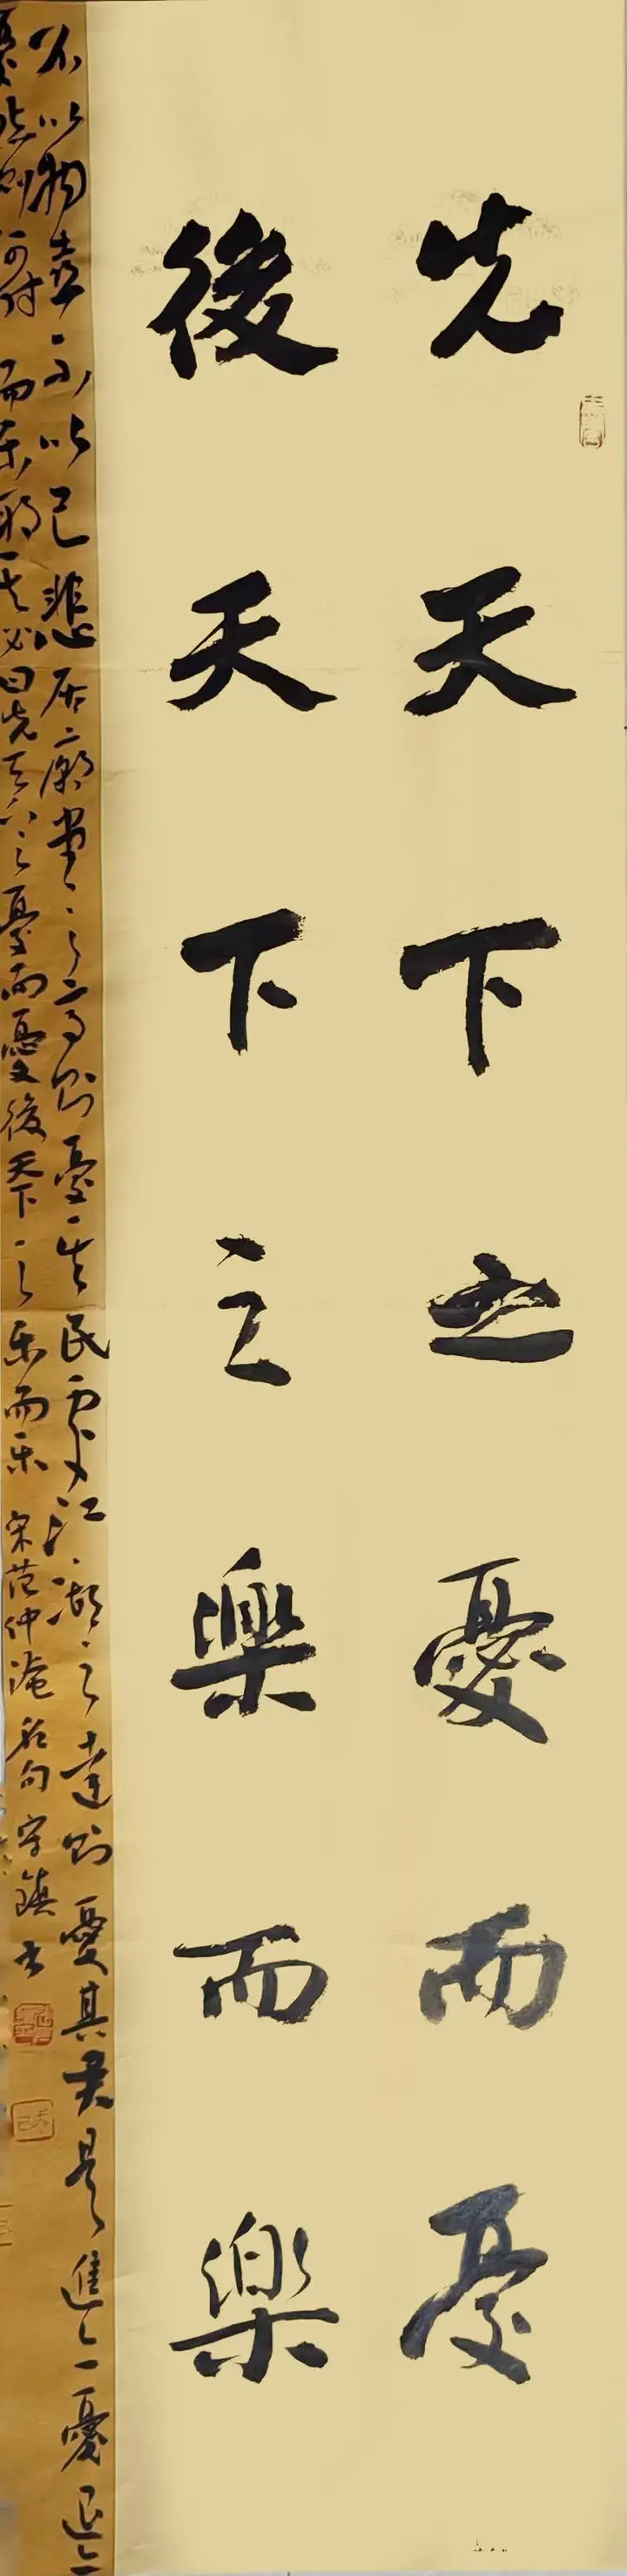 先天下之憂而憂
後天下之樂而樂
不以物喜不以己悲居廟堂之高則憂其民處江湖之遠則憂其君是進亦憂退亦
憂然則何時而樂耶其必曰先天下之憂而憂後天下之樂而樂 宋范仲淹名句 守鎮書